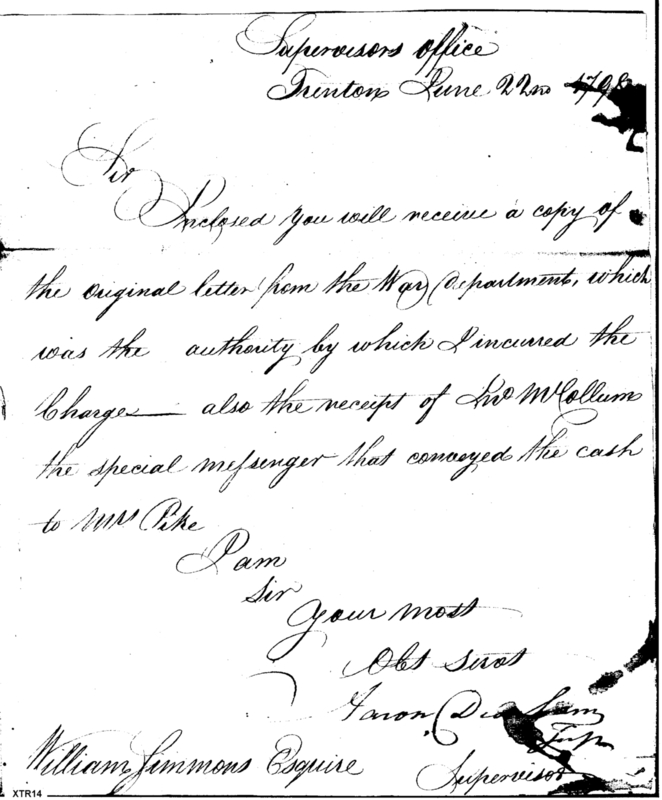 Supervisors office
Trenton June 22nd 1798
Sir
Inclosed you will receive a copy of
the original letter from the War Department, which
was the authority by which I incurred the
Charge — also the receipt of Jno McCollum
the special messenger that conveyed the cash
to Mrs Pike
I am
Sir
Your most
Obt Servt
Aaron Dunham
William Simmons Esquire
Supervisor
XTR14